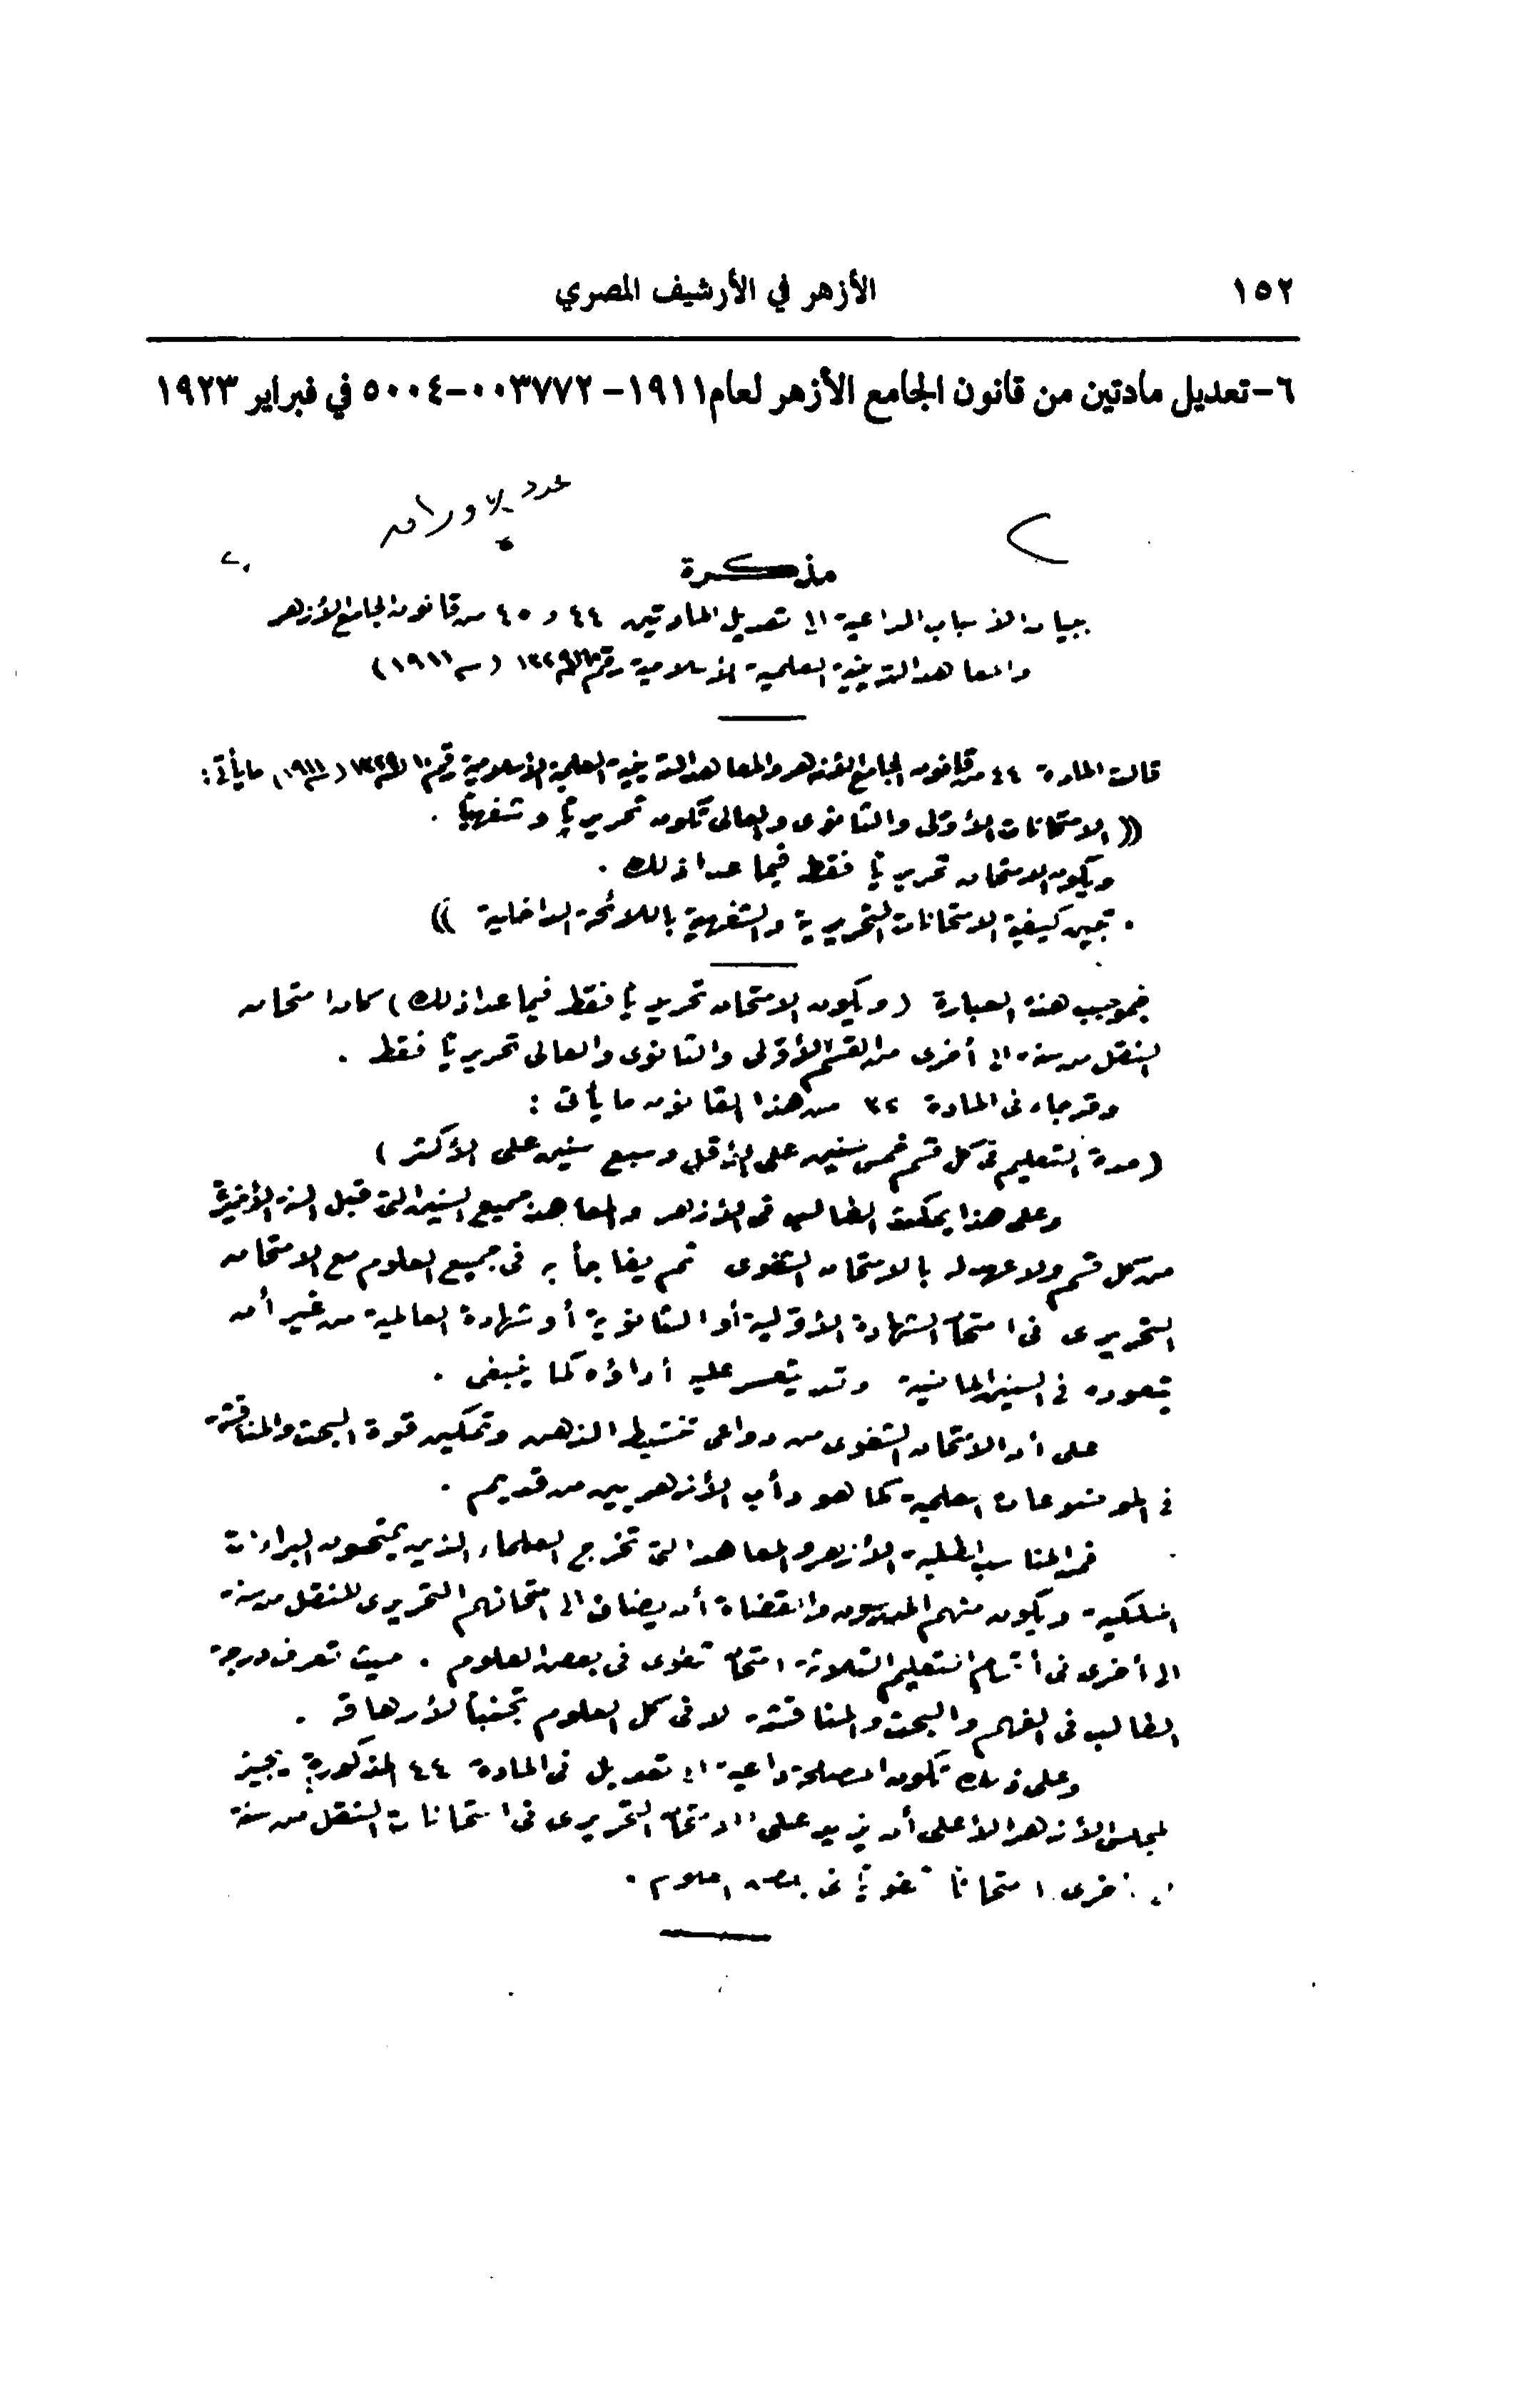 ١٥٢
الأزهر في الأرشيف المصري
٦- تعديل مادتين من قانون الجامع الأزهر لعام ١٩١١- ٠٠٣٧٧٢-٥٠٠٤ في فبراير ١٩٢٣
عدد الاوراق
مذكرة
ببيان الأسباب الداعية الى تعديل المادتين ٤٤ و ٤٥ من قانون الجامع الأزهر
والمعاهد الدينية العلمية الاسلامية رقم ١٠ لسنة ١٣٢٩ (سنة ١٩١١)
قالت المادة ٤٤ من قانون الجامع الأزهر والمعاهد الدينية العلمية الاسلامية رقم ١٠ لسنة ١٣٢٩ (سنة ١٩١١) ما يأتى :
(( الامتحانات الأولى والثانوى والعالى تكون تحريريا وشفهيا .
ويكون الامتحان تحريريا فقط فيما عدا ذلك .
تبين كيفية الامتحانات التحريرية والشفهية باللائحة الداخلية ))
فبموجب هذه العبارة (ويكون الامتحان تحريريا فقط فيما عدا ذلك) كان امتحان
النقل من سنة الى أخرى من القسم الأولى والثانوى والعالى تحريريا فقط .
وقد جاء فى المادة ٣٢ من هذا القانون ما يأتى :
(مدة التعليم فى كل قسم خمس سنين على الأقل وسبع سنين على الأكثر)
وعلى هذا يمكث الطالب فى الأزهر والمعاهد جميع السنين التى قبل السنة الأخيرة
من كل قسم ولا عهد له بالامتحان الشفوى ثم يفاجأ به فى جميع العلوم مع الامتحان
التحريرى فى امتحان الشهادة الأولية أو الثانوية أو شهادة العالمية من غير أن
يتعوده فى السنين الماضية وقد يتعسر عليه أداؤه كما ينبغى .
على أن الامتحان الشفوى من دواعى تنشيط الذهن وتمكين قوة البحث والمناقشة
فى الموضوعات العلمية كما هو دأب الأزهريين من قديم .
فمن المناسب لطلبة الأزهر والمعاهد التى تخرج العلماء الذين يمنحون البراءات
الملكية ويكون منهم المدرسون والقضاة أن يضاف الى امتحانهم التحريرى للنقل من سنة
الى أخرى فى أقسام التعليم الثلاثة امتحان شفوى فى بعض العلوم . حيث تعرف درجة
الطالب فى الفهم والبحث والمناقشة لا فى كل العلوم تجنبا لأرهاقه .
وعلى ذلك تكون المصلحة داعية الى تعديل فى المادة ٤٤ المذكورة يجيز
لمجلس الأزهر الأعلى أن يزيد على الامتحان التحريرى فى امتحانات النقل من سنة
الى أخرى امتحانا شفويا فى بعض العلوم .